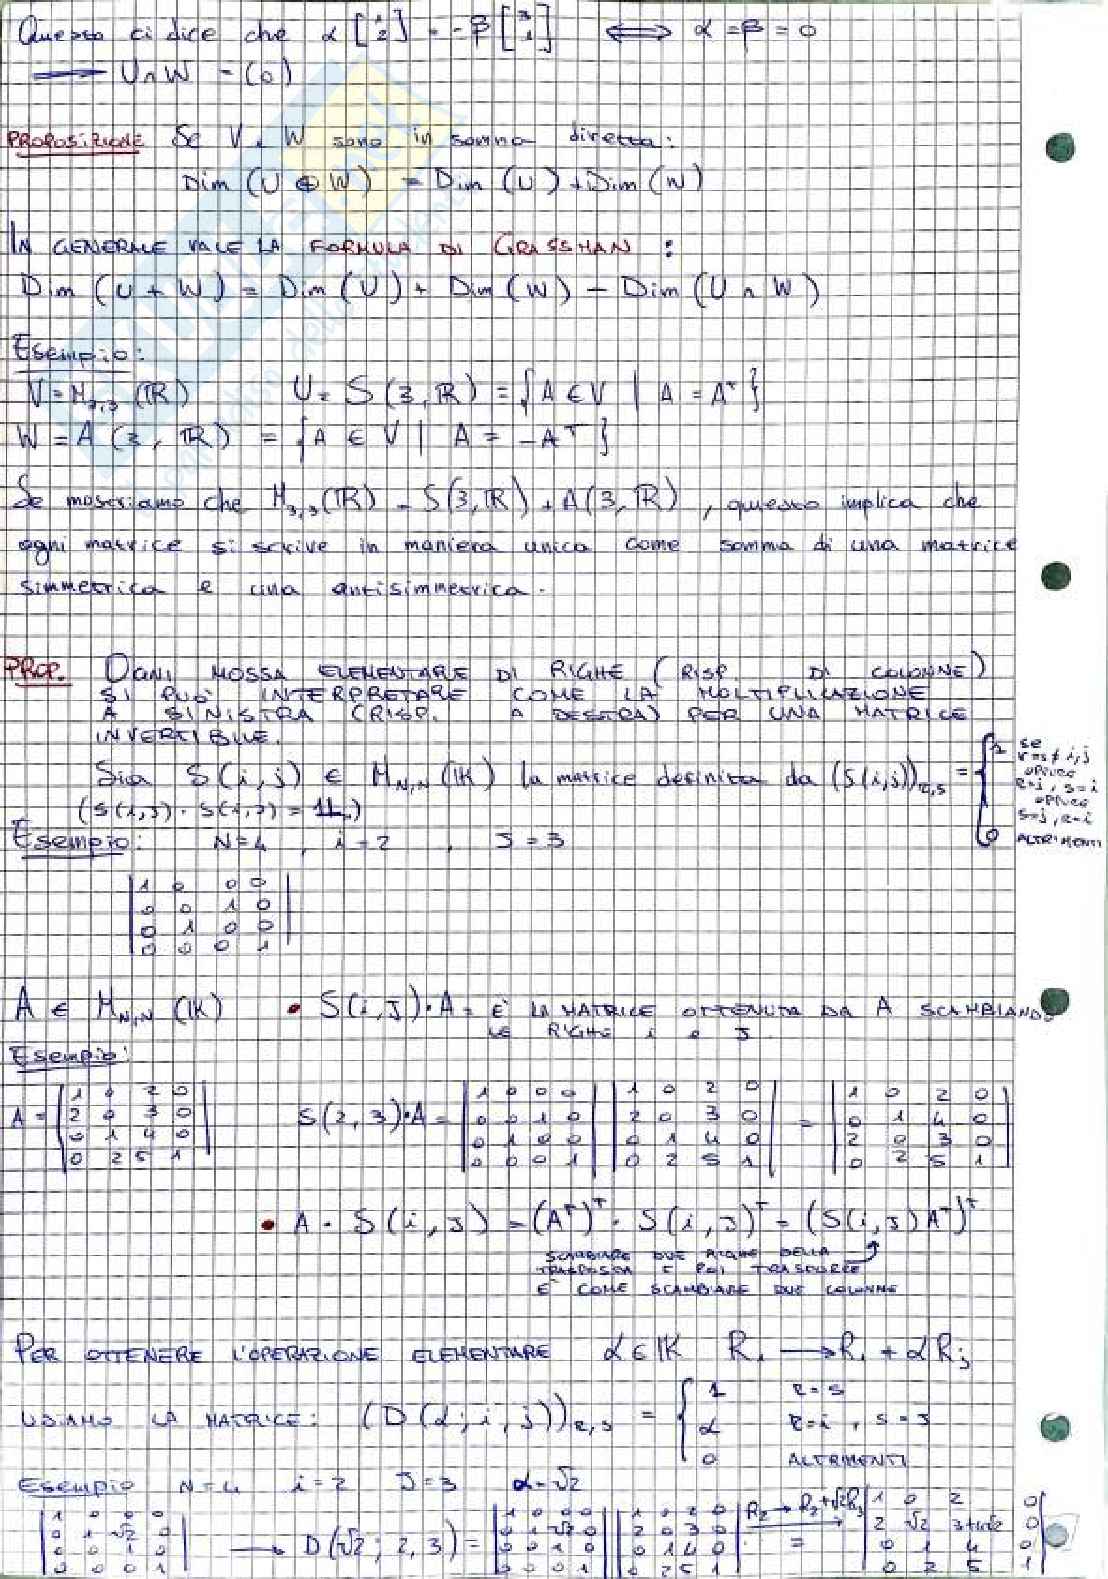 Questo ci dice che α [1 2] = -β [3 1] ⟺ α = β = 0
⟶ U∩W = (0)
PROPOSIZIONE Se V e W sono in somma diretta:
Dim (U ⊕ W) = Dim (U) + Dim (W)
IN GENERALE VALE LA FORMULA DI GRASSMAN :
Dim (U + W) = Dim (U) + Dim (W) - Dim (U ∩ W)
Esempio:
V = M3,3 (ℝ) U = S (3, ℝ) = {A ∈ V | A = Aᵀ}
W = A (3, ℝ) = {A ∈ V | A = -Aᵀ}
Se mostriamo che M3,3 (ℝ) = S(3, ℝ) + A(3, ℝ) , questo implica che
ogni matrice si scrive in maniera unica come somma di una matrice
simmetrica e una antisimmetrica.
PROP. OGNI MOSSA ELEMENTARE DI RIGHE (RISP. DI COLONNE)
SI PUÒ INTERPRETARE COME LA MOLTIPLICAZIONE
A SINISTRA (RISP. A DESTRA) PER UNA MATRICE
INVERTIBILE.
Sia S(i,j) ∈ MN,N (𝕂) la matrice definita da (S(i,j))r,s = { 1 se r=s≠i,j oppure r=j, s=i oppure s=j, r=i
0 ALTRIMENTI
(S(i,j) · S(i,j) = 1L)
Esempio: N=4 , i=2 , J=3
1 0 0 0
0 0 1 0
0 1 0 0
0 0 0 1
A ∈ MN,N (𝕂) • S(i,J)·A = È LA MATRICE OTTENUTA DA A SCAMBIANDO
LE RIGHE i e J
Esempio:
A = |1 0 2 0| S(2,3)·A = |1 0 0 0| |1 0 2 0| = |1 0 2 0|
|2 0 3 0| |0 0 1 0| |2 0 3 0| |0 1 4 0|
|0 1 4 0| |0 1 0 0| |0 1 4 0| |2 0 3 0|
|0 2 5 1| |0 0 0 1| |0 2 5 1| |0 2 5 1|
• A · S(i,J) = (Aᵀ)ᵀ · S(i,J)ᵀ = (S(i,J) Aᵀ)ᵀ
SCAMBIARE DUE RIGHE DELLA
TRASPOSTA E POI TRASPORRE
E' COME SCAMBIARE DUE COLONNE
PER OTTENERE L'OPERAZIONE ELEMENTARE α∈𝕂 Ri ⟶ Ri + αRj
USIAMO LA MATRICE: (D(α; i, j))r,s = { 1 r=s
α r=i , s=J
0 ALTRIMENTI
Esempio N=4 i=2 J=3 α=√2
|1 0 0 0| ⟶ D(√2; 2,3) = |1 0 0 0| |1 0 2 0| R2 → R2+√2R3 = |1 0 2 0|
|0 1 √2 0| |0 1 √2 0| |2 0 3 0| |2 √2 3+4√2 0|
|0 0 1 0| |0 0 1 0| |0 1 4 0| |0 1 4 0|
|0 0 0 1| |0 0 0 1| |0 2 5 1| |0 2 5 1|